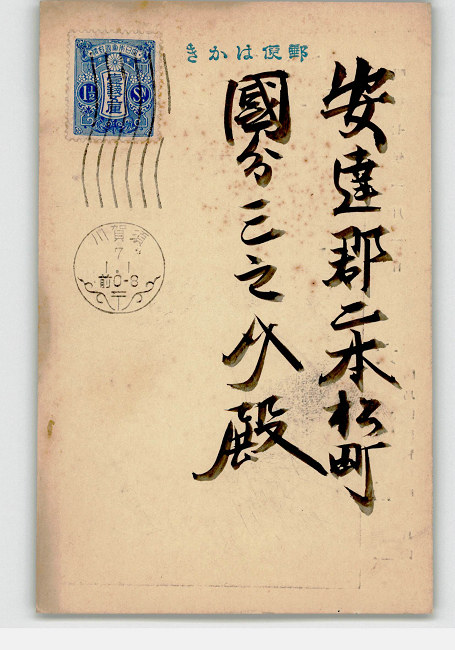 郵便はかき
安達郡二本松町
國分三之介殿
1½ SN
壹錢五厘
須賀川
7
1.1
前0-8